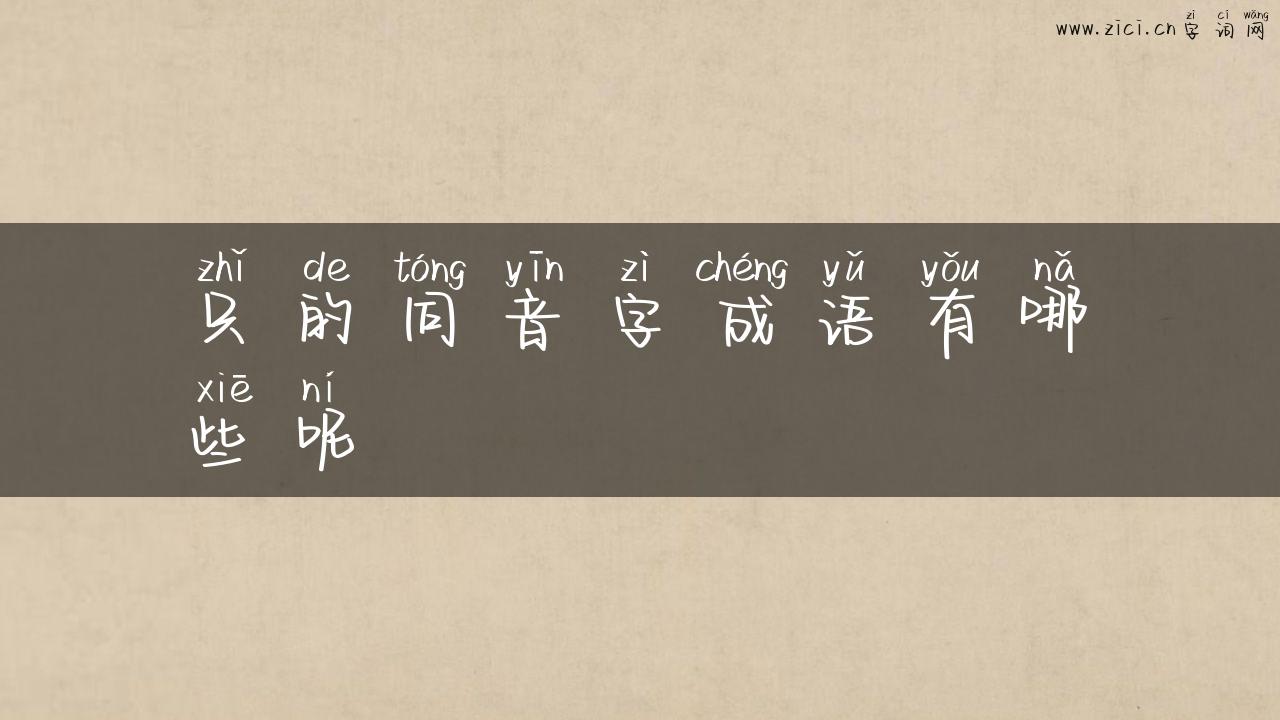 zì cí wǎng
www.zici.cn 字词网
zhǐ de tóng yīn zì chéng yǔ yǒu nǎ
只的同音字成语有哪
xiē ní
些呢